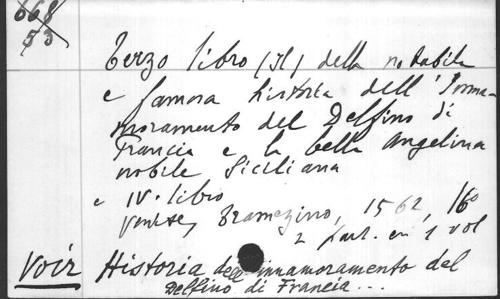 668
53
Terzo libro (Il) della notabile
e famosa historia dell'Inna-
moramento del Delfino di
Francia e la bella Angelina
nobile Siciliana
e IV. libro
Venise, Tramezino, 1562, 16º
2 part. en 1 vol
Voir Historia degli innamoramento del
Delfino di Francia...